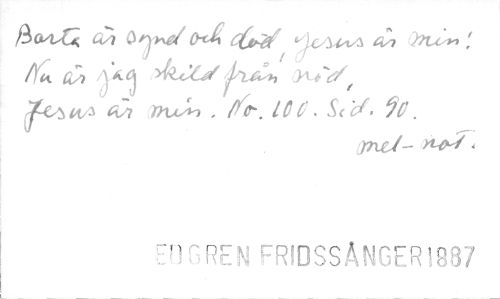 Borta är synd och död, Jesus är min!
Nu är jag skild från nöd,
Jesus är min. No. 100. Sid. 90.
mel-not.
EDGREN FRIDSSÅNGER 1887